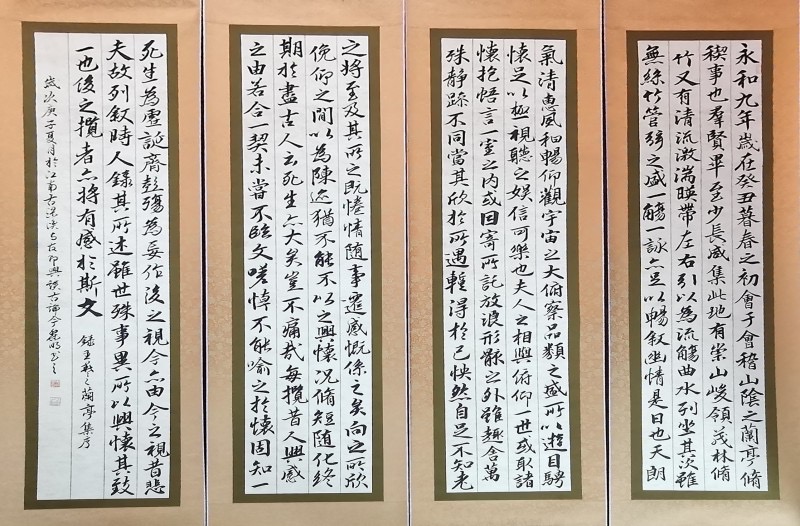 永和九年歲在癸丑暮春之初會于會稽山陰之蘭亭脩
稧事也羣賢畢至少長咸集此地有崇山峻領茂林脩
竹又有清流激湍暎帶左右引以為流觴曲水列坐其次雖
無絲竹管弦之盛一觴一詠亦足以暢叙幽情是日也天朗
氣清惠風和暢仰觀宇宙之大俯察品類之盛所以遊目騁
懷足以極視聽之娛信可樂也夫人之相與俯仰一世或取諸
懷抱悟言一室之内或因寄所託放浪形骸之外雖趣舍萬
殊靜躁不同當其欣於所遇蹔得於己怏然自足不知老
之將至及其所之既惓情隨事遷感慨係之矣向之所欣
俛仰之間以為陳迹猶不能不以之興懷況脩短隨化終
期於盡古人云死生亦大矣豈不痛哉每攬昔人興感
之由若合一契未嘗不臨文嗟悼不能喻之於懷固知一
死生為虛誕齊彭殤為妄作後之視今亦由今之視昔悲
夫故列叙時人錄其所述雖世殊事異所以興懷其致
一也後之攬者亦將有感於斯文 錄王羲之蘭亭集序
歲次庚子夏月於江南古梁溪与友即興談古論今書之